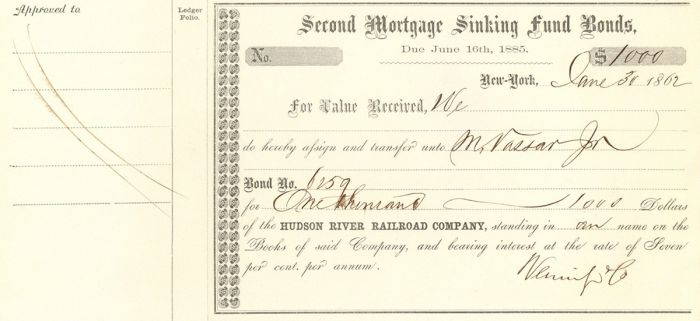 Approved to
Ledger
Folio.
Second Mortgage Sinking Fund Bonds,
Due June 16th, 1885.
No.
$ 1000
New-York, June 30 1862
For Value Received, We
do hereby assign and transfer unto M. Vassar Jr
Bond No. 6159
for One thousand 1000 Dollars
of the HUDSON RIVER RAILROAD COMPANY, standing in our name on the
Books of said Company, and bearing interest at the rate of Seven
per cent. per annum.